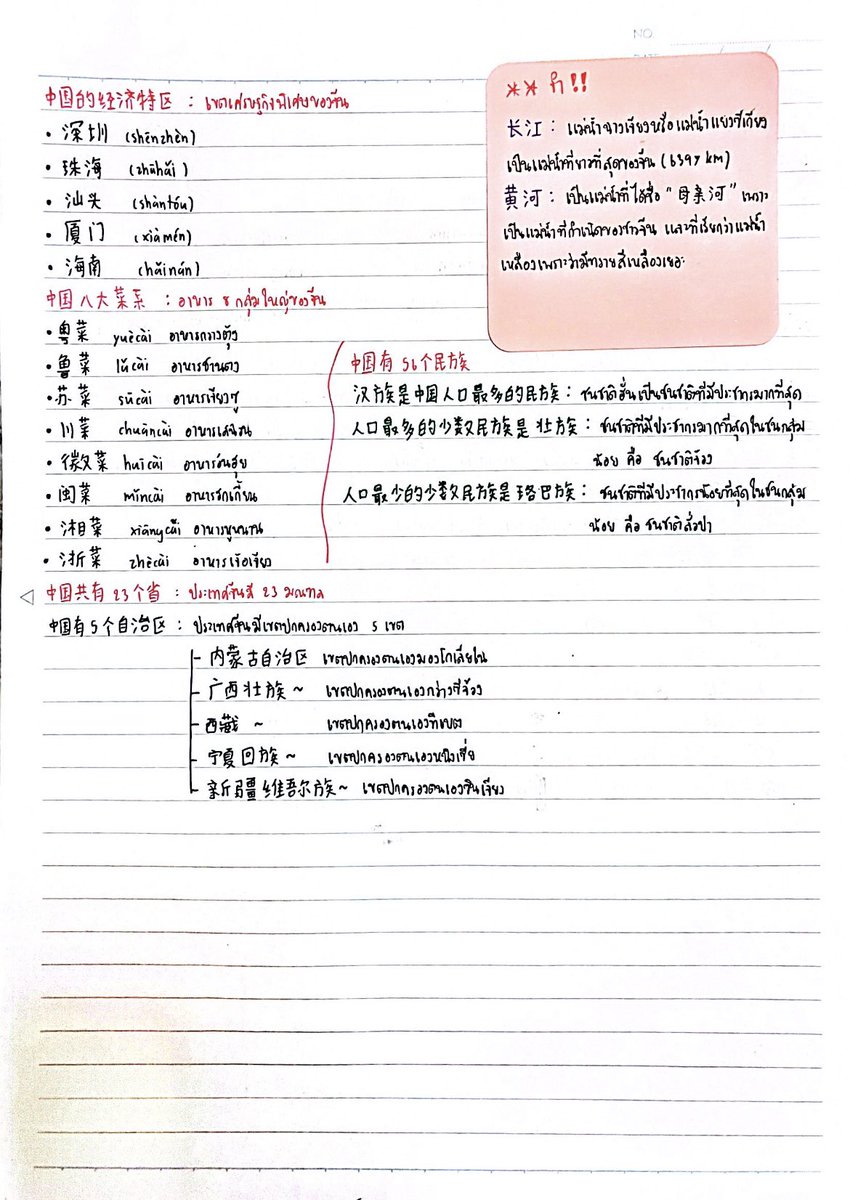 NO.
DATE
中国的经济特区 : เขตเศรษฐกิจพิเศษของจีน
• 深圳 (shēnzhèn)
• 珠海 (zhūhǎi)
• 汕头 (shàntóu)
• 厦门 (xiàmén)
• 海南 (hǎinán)
** จำ !!
长江 : แม่น้ำฉางเจียงหรือแม่น้ำแยงซีเกียง
เป็นแม่น้ำที่ยาวที่สุดของจีน (6397 km)
黄河 : เป็นแม่น้ำที่ได้ชื่อ "母亲河" เพราะ
เป็นแม่น้ำที่กำเนิดของชาวจีน และที่เรียกว่าแม่น้ำ
เหลืองเพราะว่ามีทรายสีเหลืองเยอะ
中国八大菜系 : อาหาร 8 กลุ่มใหญ่ของจีน
• 粤菜 yuècài อาหารกวางตุ้ง
• 鲁菜 lǔcài อาหารซานตง
• 苏菜 sūcài อาหารเจียงซู
• 川菜 chuāncài อาหารเสฉวน
• 徽菜 huīcài อาหารอันฮุย
• 闽菜 mǐncài อาหารฮกเกี้ยน
• 湘菜 xiāngcài อาหารหูหนาน
• 浙菜 zhècài อาหารเจ้อเจียง
中国有 56 个民族
汉族是中国人口最多的民族 : ชนชาติฮั่นเป็นชนชาติที่มีประชากรมากที่สุด
人口最多的少数民族是壮族 : ชนชาติที่มีประชากรมากที่สุดในชนกลุ่ม
น้อย คือ ชนชาติจ้วง
人口最少的少数民族是珞巴族 : ชนชาติที่มีประชากรน้อยที่สุดในชนกลุ่ม
น้อย คือ ชนชาติลั่วปา
中国共有 23 个省 : ประเทศจีนมี 23 มณฑล
中国有 5 个自治区 : ประเทศจีนมีเขตปกครองตนเอง 5 เขต
- 内蒙古自治区 เขตปกครองตนเองมองโกเลียใน
- 广西壮族 ~ เขตปกครองตนเองกว่างซีจ้วง
- 西藏 ~ เขตปกครองตนเองทิเบต
- 宁夏回族 ~ เขตปกครองตนเองหนิงเซี่ย
- 新疆维吾尔族 ~ เขตปกครองตนเองซินเจียง